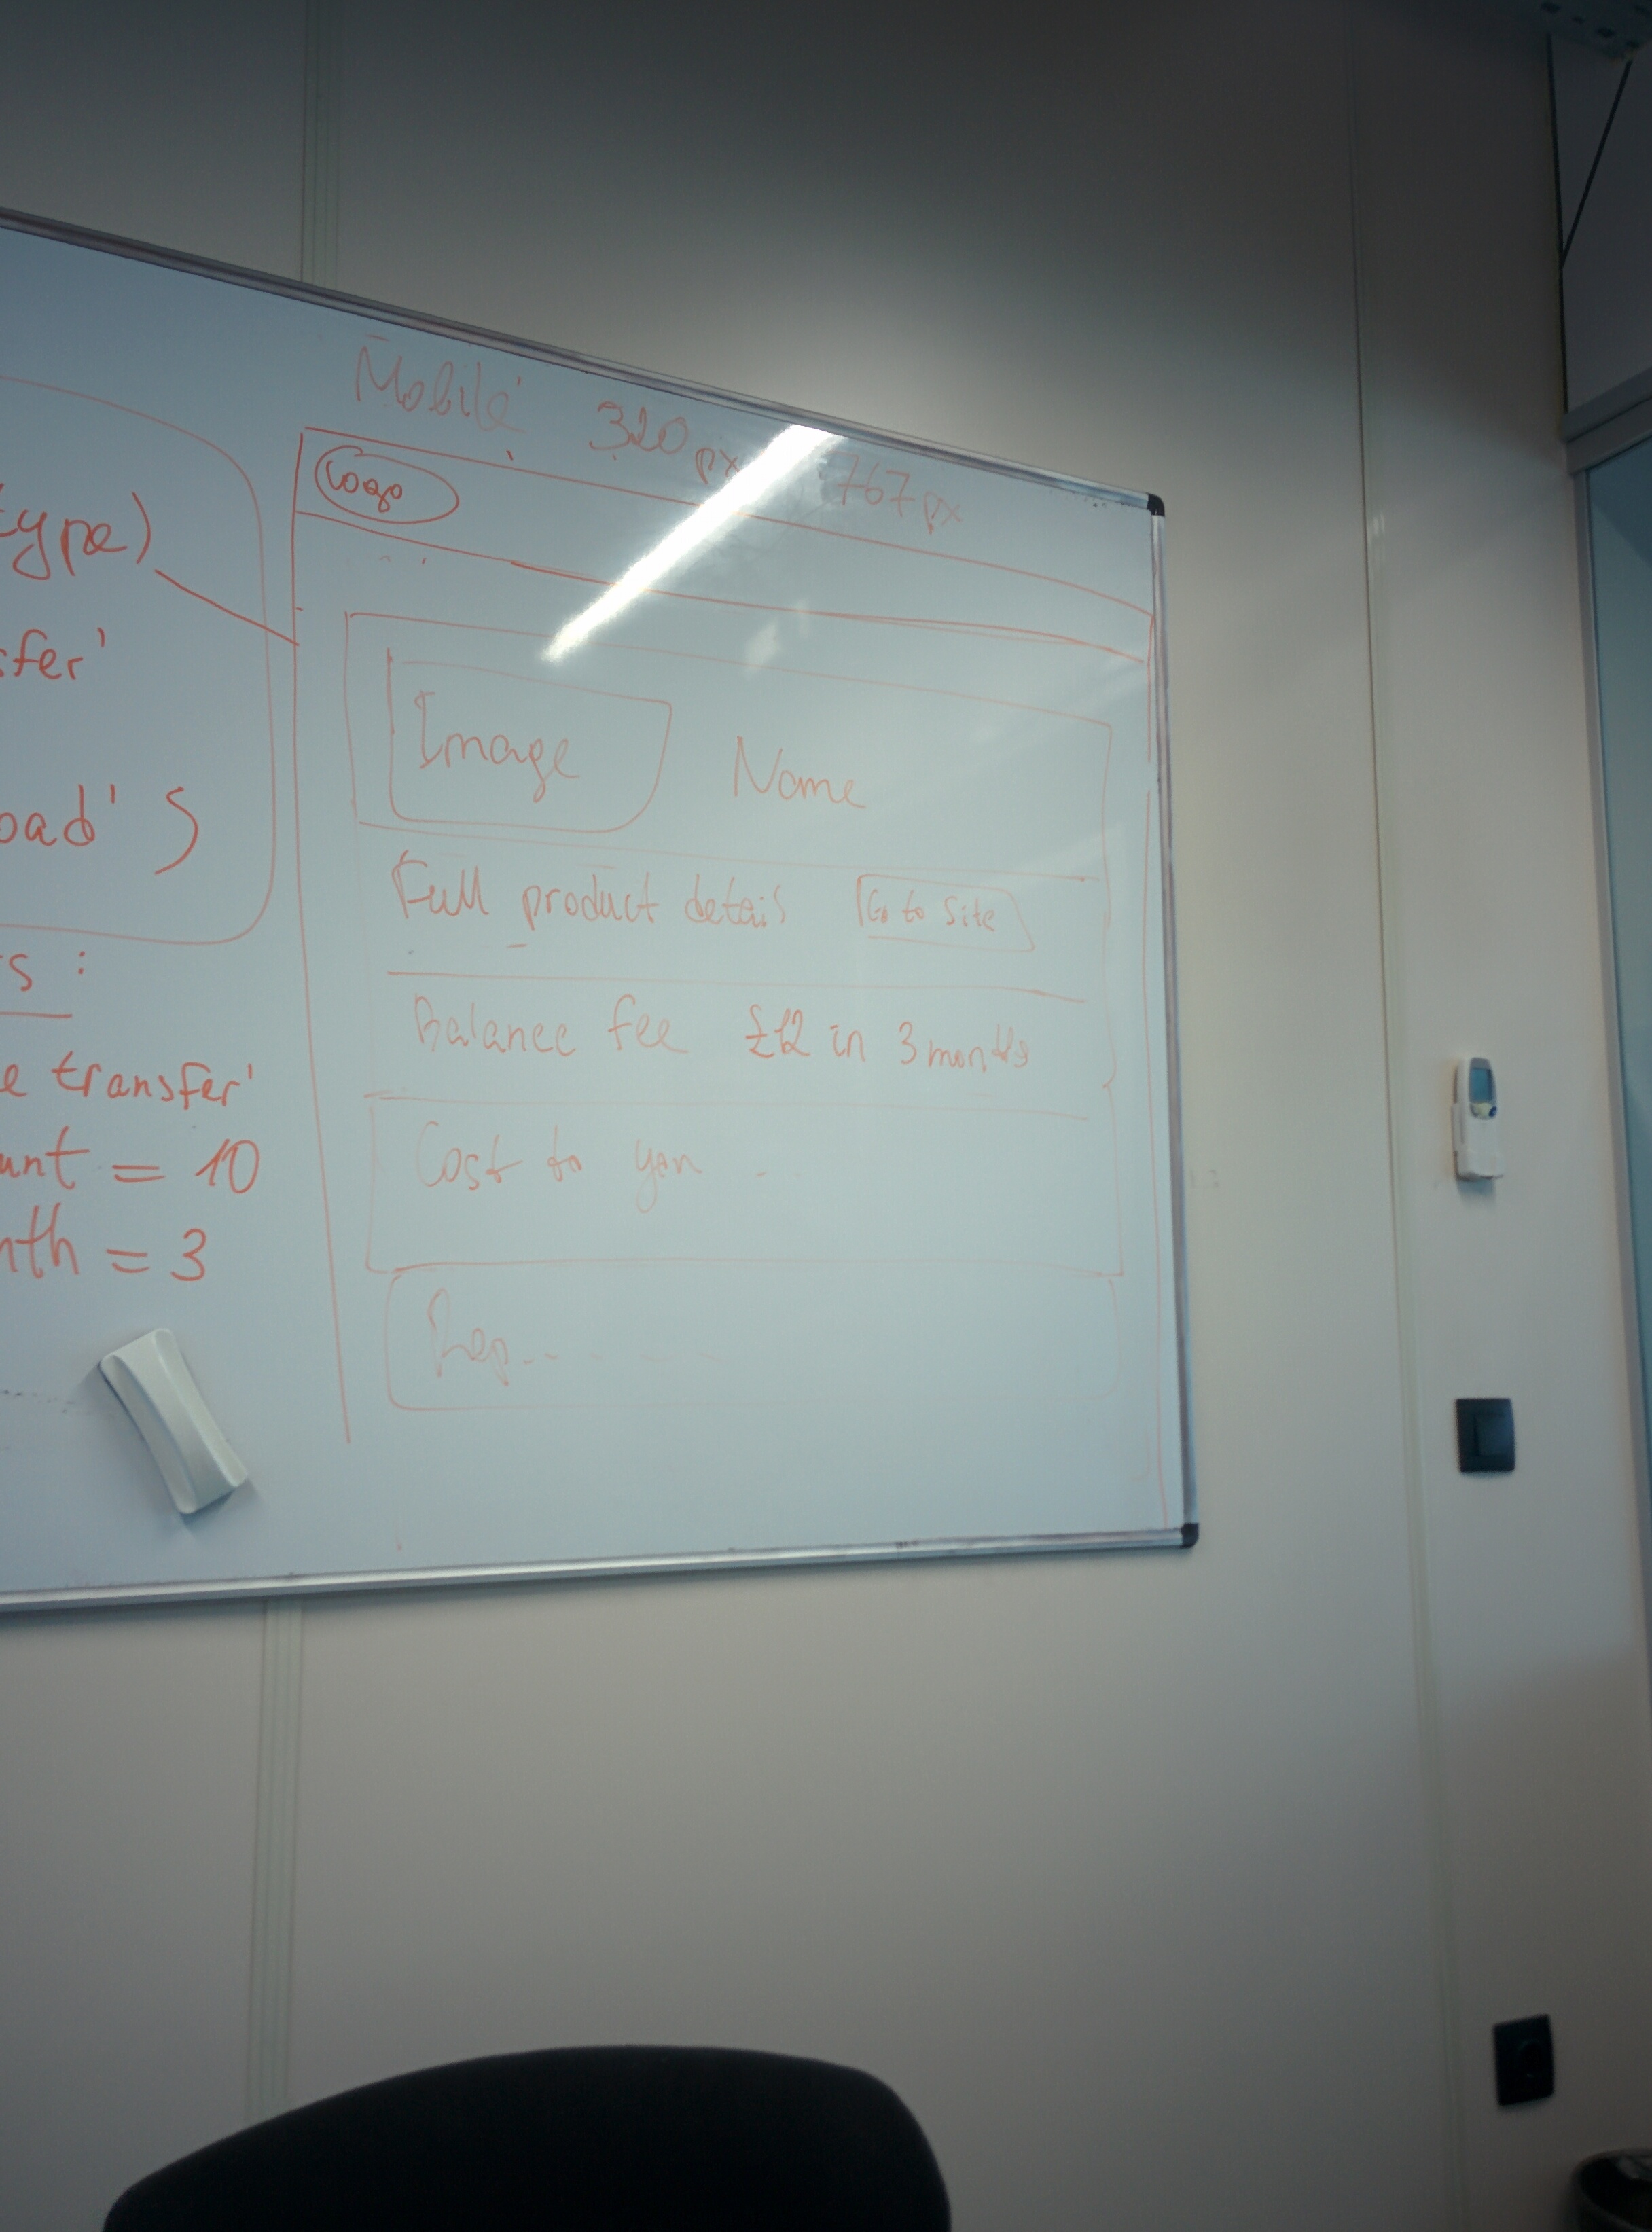 type)
sfer'
oad' }
s :
e transfer'
unt = 10
nth = 3
Mobile 320px 767px
Logo
Image Name
Full product details Go to Site
Balance fee £12 in 3 months
Cost to you
Rep......